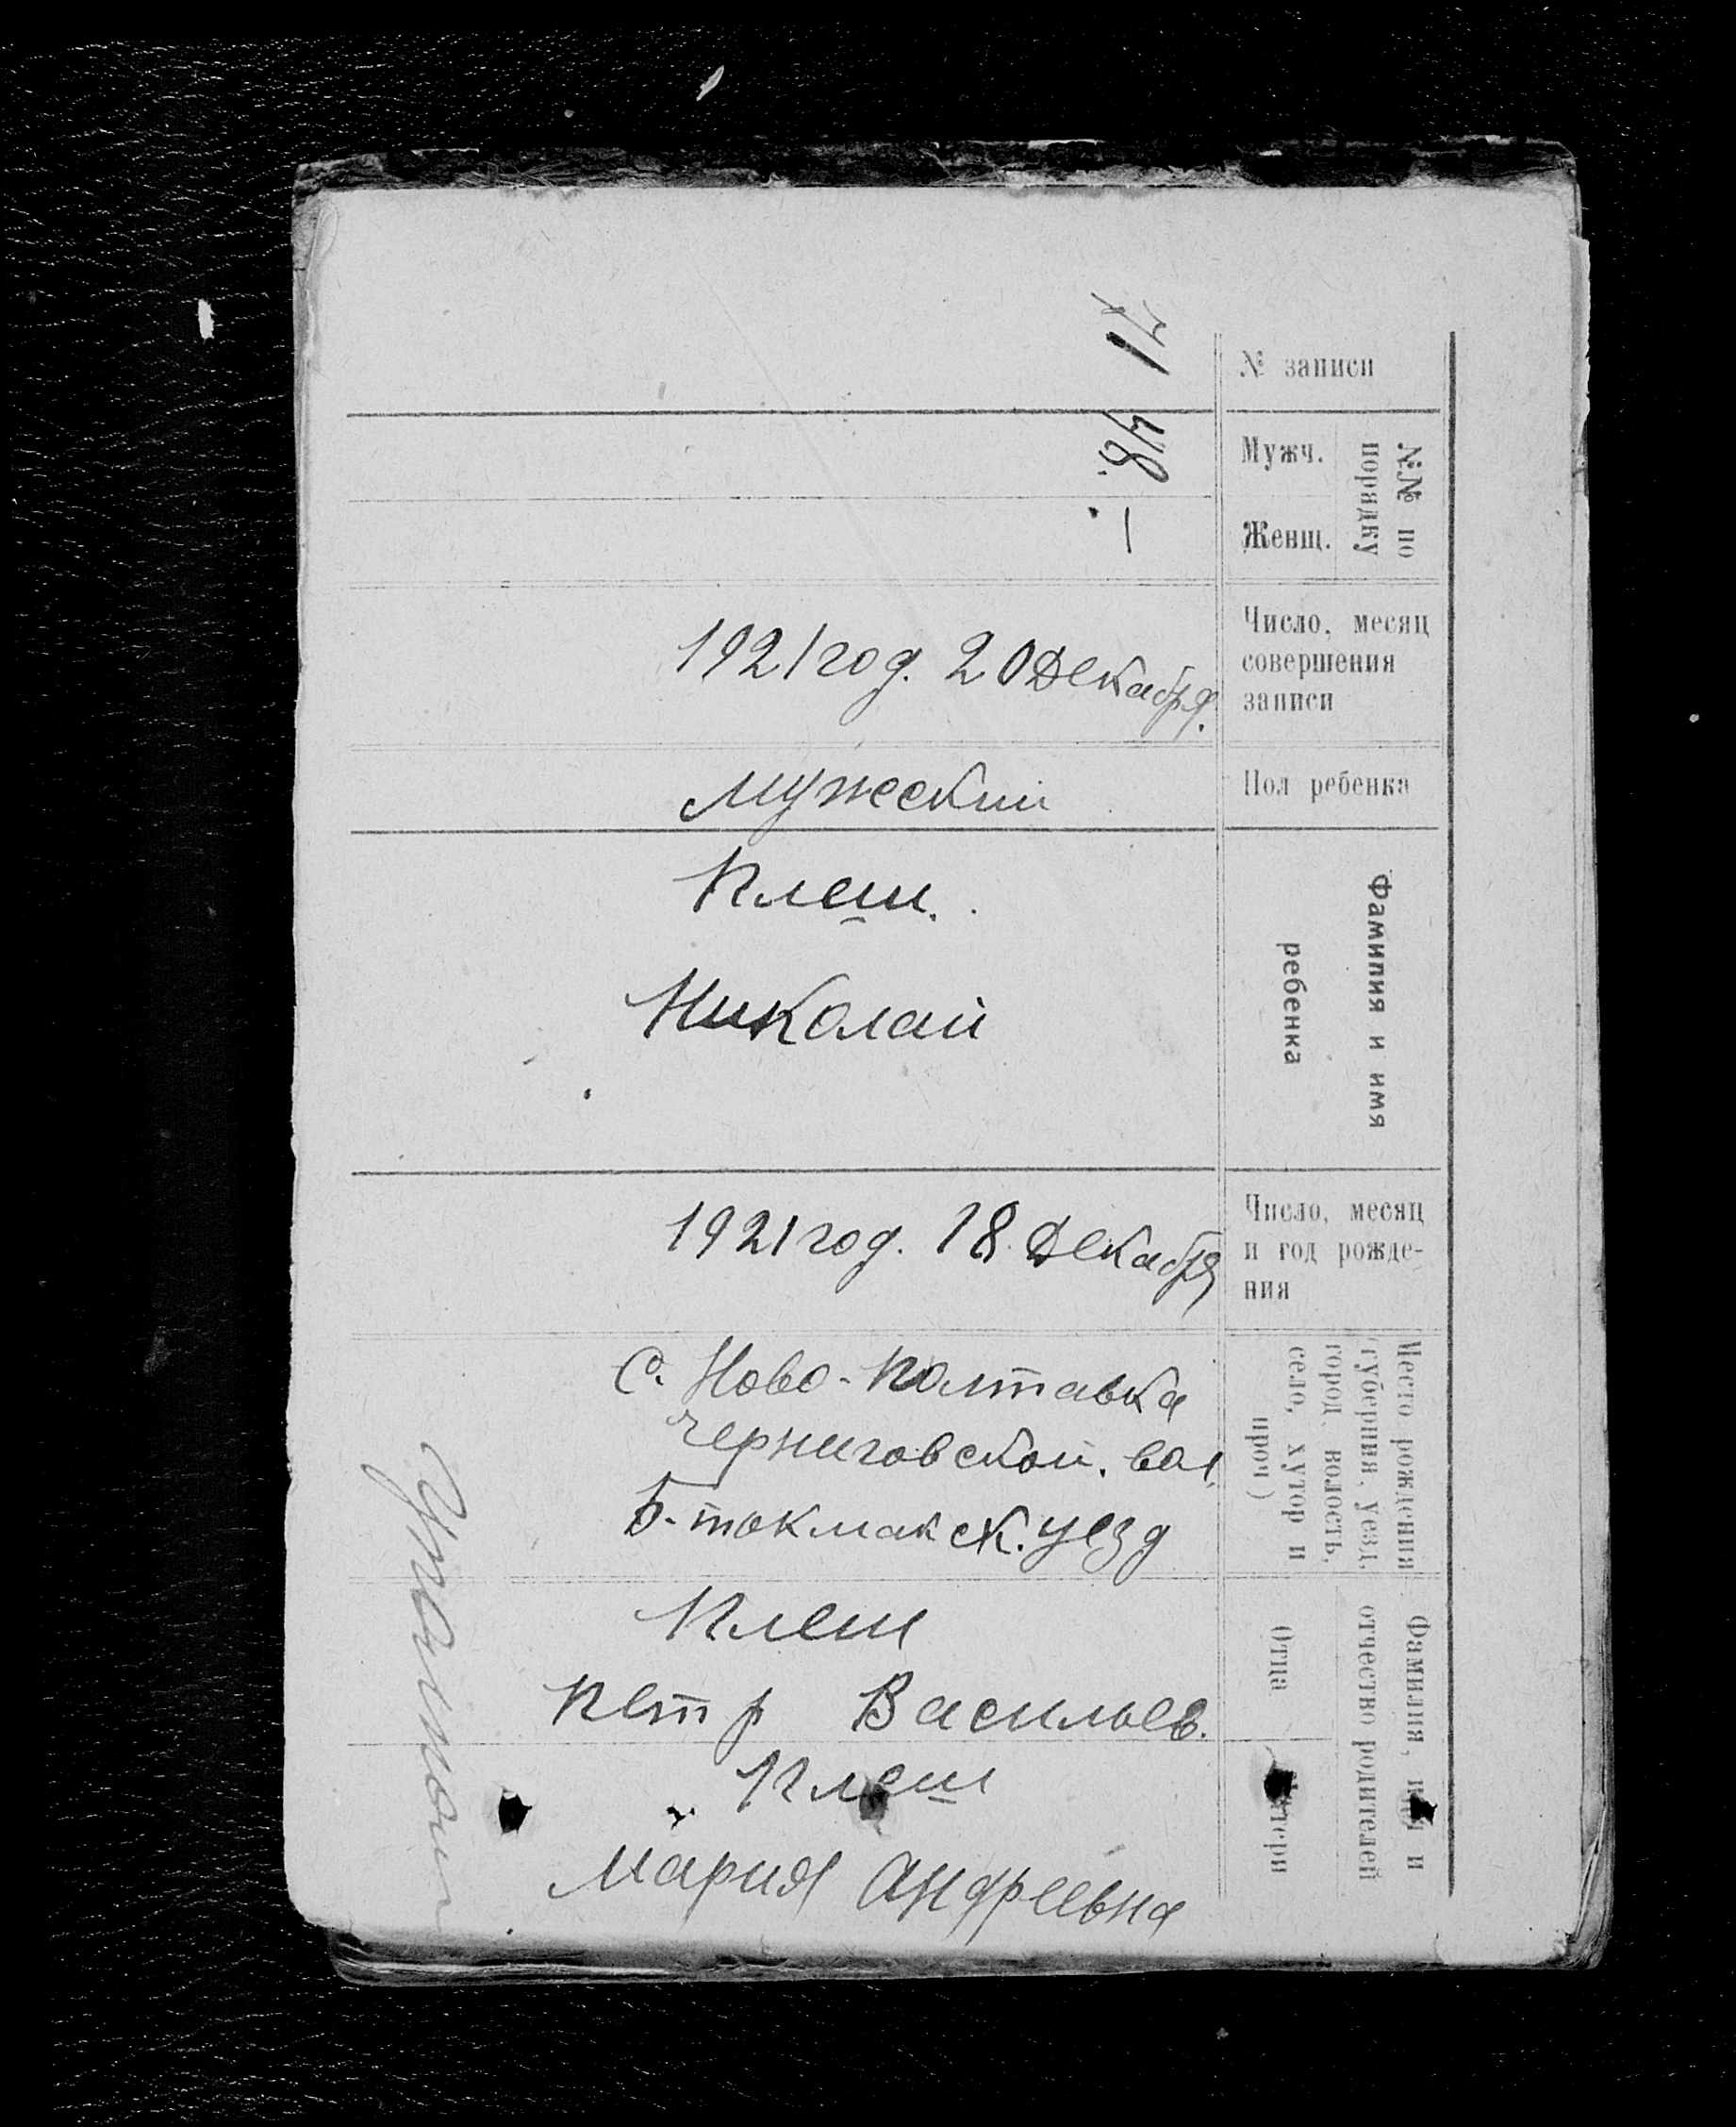 № записи
71
№№ по порядку
Мужч.
48.
Женщ.
—
Число, месяц
совершения
записи
1921 год. 20 Декабря.
Пол ребенка
мужеский
Фамилия и имя
ребенка
Плеш.
Николай
Число, месяц
и год рожде-
ния
1921 год. 18 Декабря
Место рождения
(губерния, уезд,
город, волость,
село, хутор и
проч)
С. Ново-Полтавка
Черниговской. вол.
Б-токмакск. уезд
Фамилия, имя и
отчество родителей
Отца
Плеш
Петр Васильев.
Матери
Плеш
Мария Андреевна